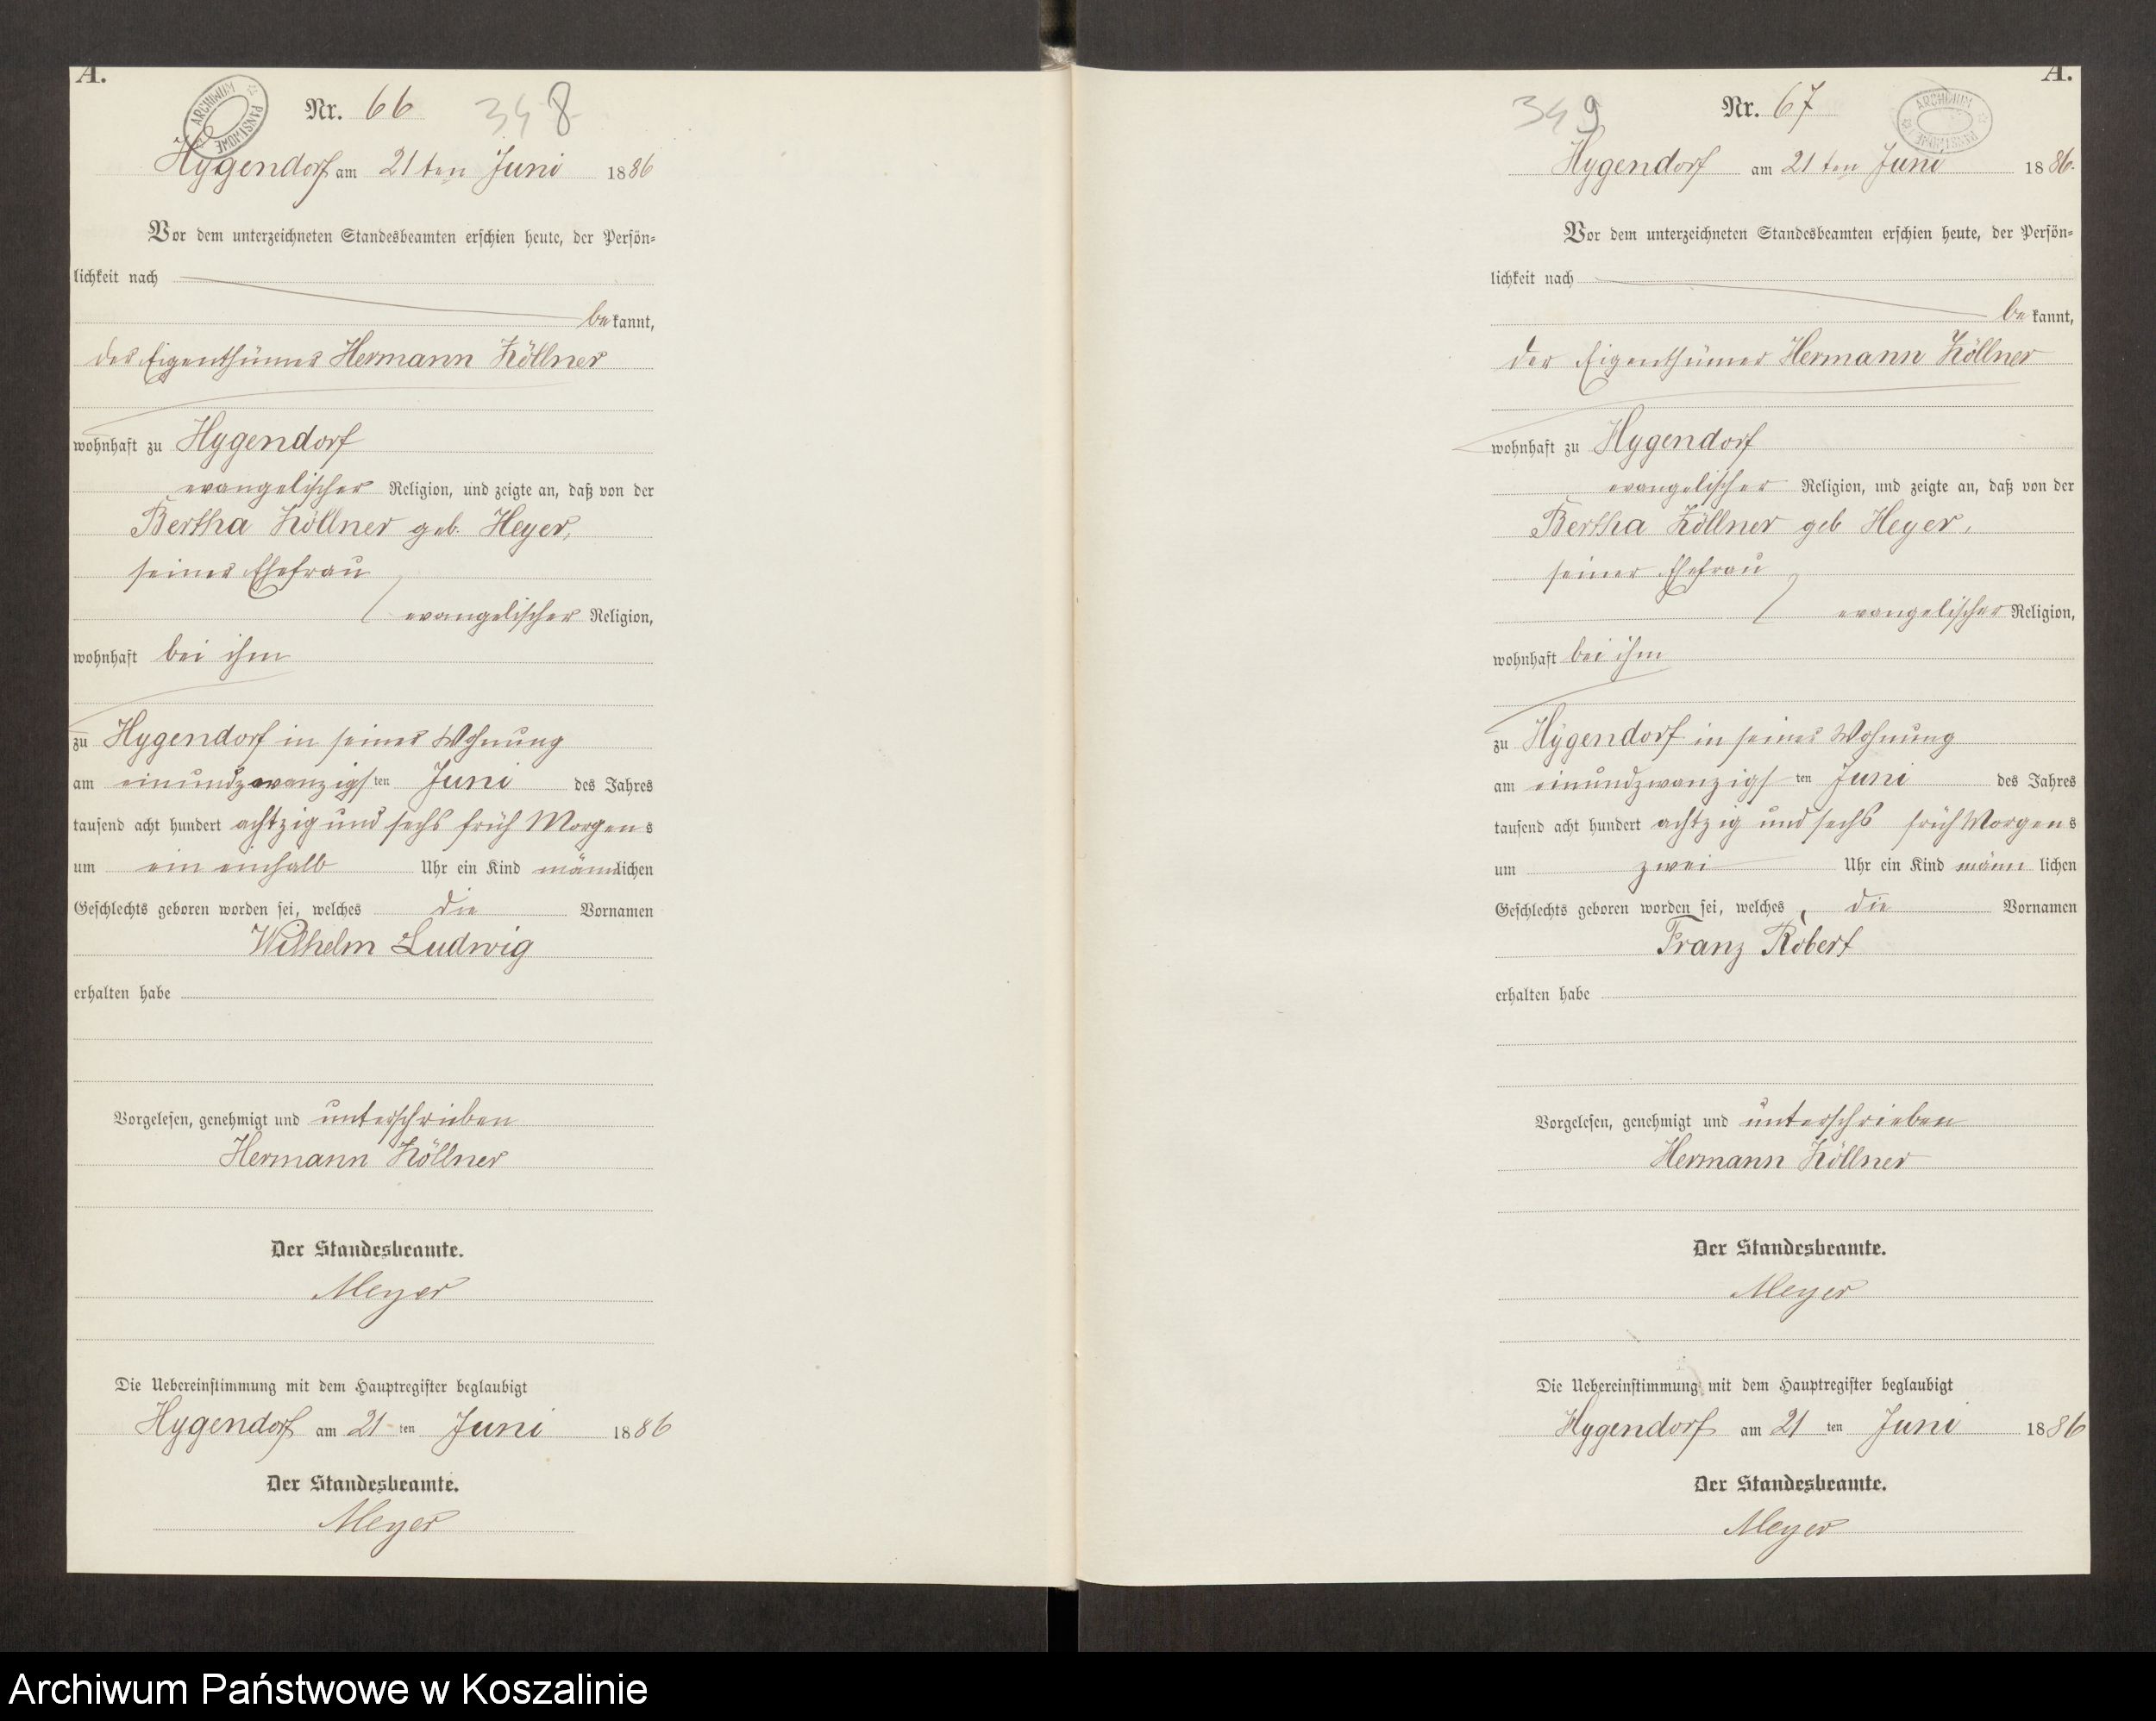 A.
ARCHIWUM PAŃSTWOWE
Nr. 66
348
Hygendorf am 21ten Juni 1886
Vor dem unterzeichneten Standesbeamten erschien heute, der Persön-
lichkeit nach
bekannt,
der Eigenthümer Hermann Köllner
wohnhaft zu Hygendorf
evangelischer Religion, und zeigte an, daß von der
Bertha Köllner geb. Heyer,
seiner Ehefrau
evangelischer Religion,
wohnhaft bei ihm
zu Hygendorf in seiner Wohnung
am einundzwanzigsten Juni des Jahres
tausend acht hundert achtzig und sechs früh Morgens
um ein einhalb Uhr ein Kind männlichen
Geschlechts geboren worden sei, welches die Vornamen
Wilhelm Ludwig
erhalten habe
Vorgelesen, genehmigt und unterschrieben
Hermann Köllner
Der Standesbeamte.
Meyer
Die Uebereinstimmung mit dem Hauptregister beglaubigt
Hygendorf am 21ten Juni 1886
Der Standesbeamte.
Meyer
A.
349
Nr. 67
ARCHIWUM PAŃSTWOWE
Hygendorf am 21ten Juni 1886.
Vor dem unterzeichneten Standesbeamten erschien heute, der Persön-
lichkeit nach
bekannt,
der Eigenthümer Hermann Köllner
wohnhaft zu Hygendorf
evangelischer Religion, und zeigte an, daß von der
Bertha Köllner geb Heyer,
seiner Ehefrau
evangelischer Religion,
wohnhaft bei ihm
zu Hygendorf in seiner Wohnung
am einundzwanzigsten Juni des Jahres
tausend acht hundert achtzig und sechs früh Morgens
um zwei Uhr ein Kind männlichen
Geschlechts geboren worden sei, welches die Vornamen
Franz Robert
erhalten habe
Vorgelesen, genehmigt und unterschrieben
Hermann Köllner
Der Standesbeamte.
Meyer
Die Uebereinstimmung mit dem Hauptregister beglaubigt
Hygendorf am 21ten Juni 1886
Der Standesbeamte.
Meyer
Archiwum Państwowe w Koszalinie